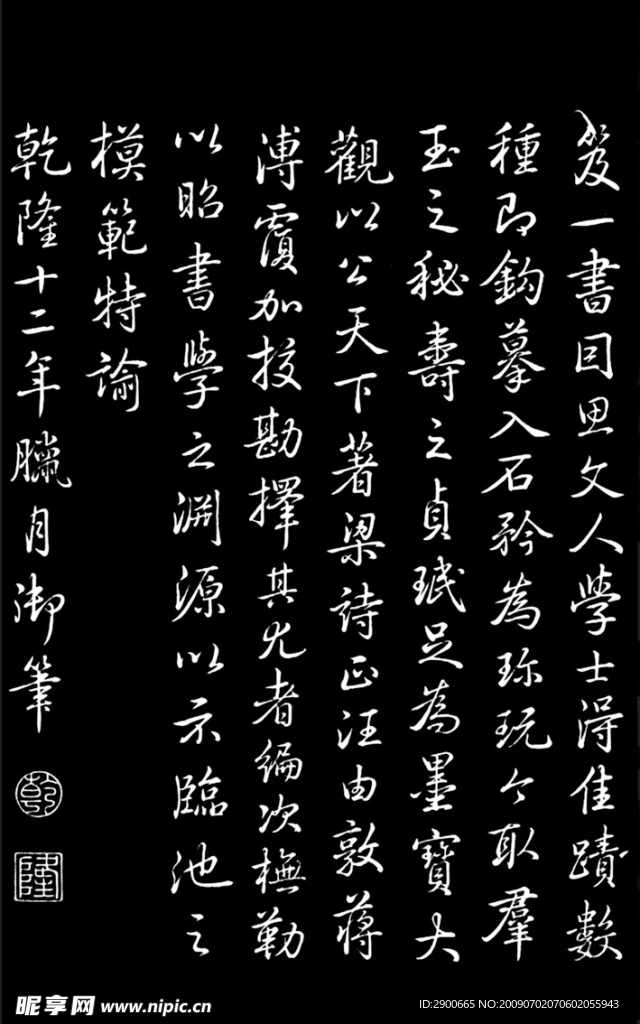 爰一書因思文人學士得佳蹟數
種即鈎摹入石矜為珎玩今取羣
玉之秘壽之貞珉足為墨寶大
觀以公天下著梁詩正汪由敦蔣
溥覆加挍勘擇其尤者編次橅勒
以昭書學之淵源以示臨池之
模範特諭
乾隆十二年臘月御筆
乾
隆
昵享网 www.nipic.cn
ID:2900665 NO:20090702070602055943